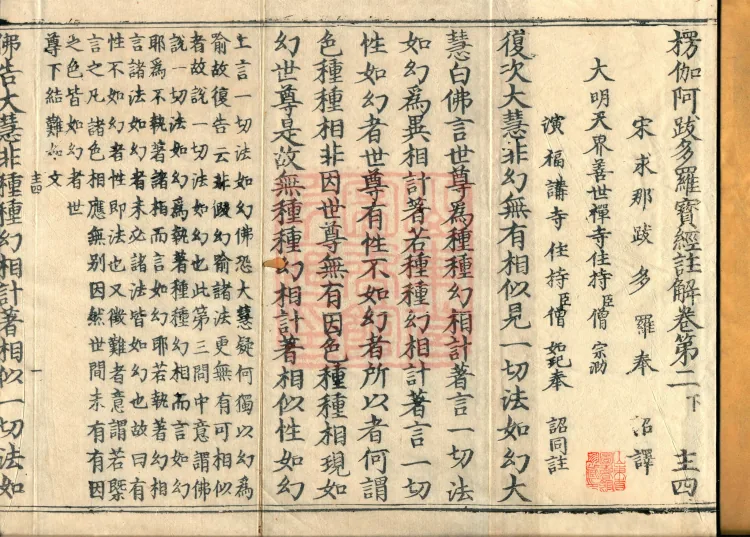 楞伽阿跋多羅寶經註解卷第二下 主四
宋求那跋多羅奉 詔譯
大明天界善世禪寺住持臣僧宗泐
演福講寺住持臣僧如玘奉 詔同註
復次大慧非幻無有相似見一切法如幻大
慧白佛言世尊為種種幻相計著言一切法
如幻為異相計著若種種幻相計著言一切
性如幻者世尊有性不如幻者所以者何謂
色種種相非因世尊無有因色種種相現如
幻世尊是故無種種幻相計著相似性如幻
上言一切法如幻佛恐大慧疑何獨以幻為
喻故復告云非假幻喻諸法更無有可相似
者故說一切法如幻也此第三問中意謂佛
說一切法如幻為執著種種幻相而言如幻
耶為不執著諸相而言如幻耶若執著幻相
言諸法如幻者未必諸法皆如幻也故曰有
性不如幻者性即法也又徵難者意謂若槩
言之凡諸色相應無別因然世間未有有因
之色皆如幻者世
尊下結難如文
主四
一
佛告大慧非種種幻相計著相似一切法如